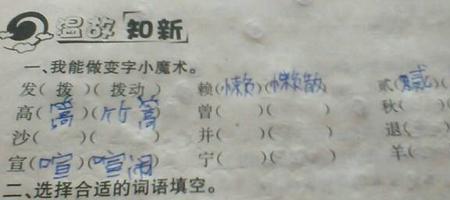 温故知新
一、我能做变字小魔术。
发(拨)(拨动) 赖(懒)(懒散) 贰(腻)
高(篙)(竹篙) 曾( )( ) 秋(
沙( )( ) 并( )( ) 退(
宣(喧)(喧闹) 宁( )( ) 羊(
二、选择合适的词语填空。